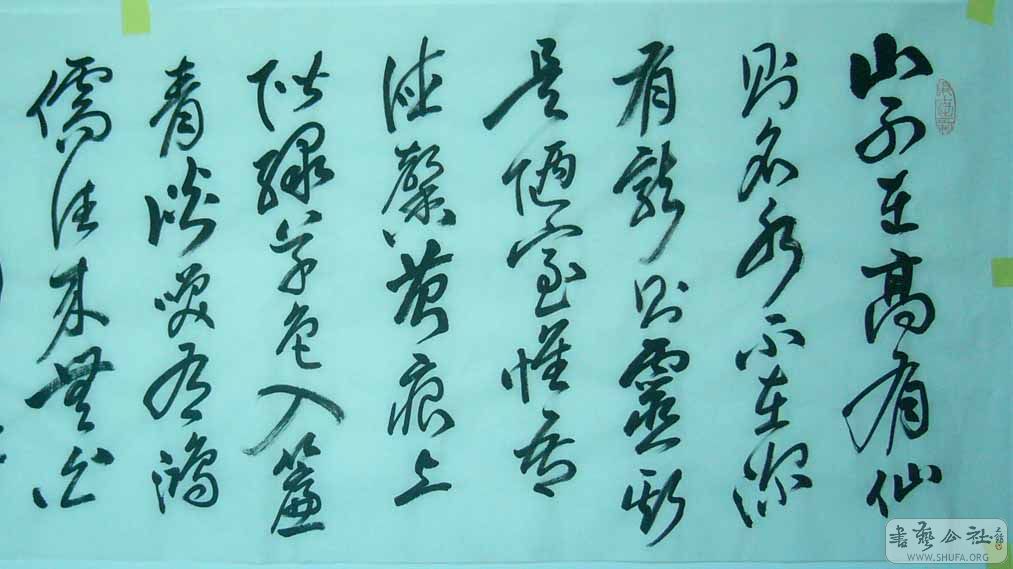 山不在高有仙
则名水不在深
有龍则靈斯
是陋室惟吾
德馨苔痕上
階绿草色入簾
青谈笑有鸿
儒往来無白
書藝公社
WWW.SHUFA.ORG